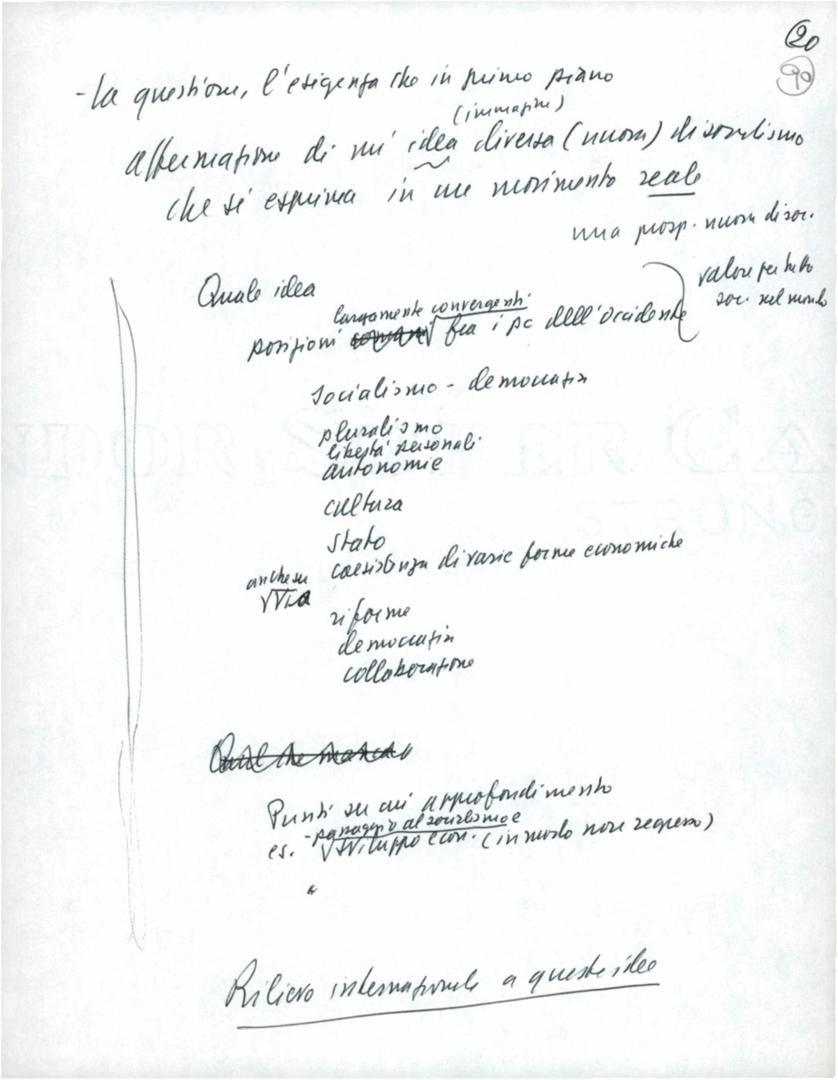 20
90
- la questione, l'esigenza che in primo piano
(immagine)
affermazione di un' idea diversa (nuova) di socialismo
che si esprima in un movimento reale
una prosp. nuova di soc.
valore per tutto
soc. nel mondo
Quale idea
largamente convergenti
posizioni comuni fra i pc dell'occidente
socialismo - democrazia
pluralismo
libertà personali
autonomie
cultura
stato
coesistenza di varie forme economiche
anche su
riforme
democrazia
collaborazione
Punti su cui approfondimento
- passaggio al socialismo e
es. sviluppo econ. (in modo non regresso)
"
Rilievo internazionale a queste idee